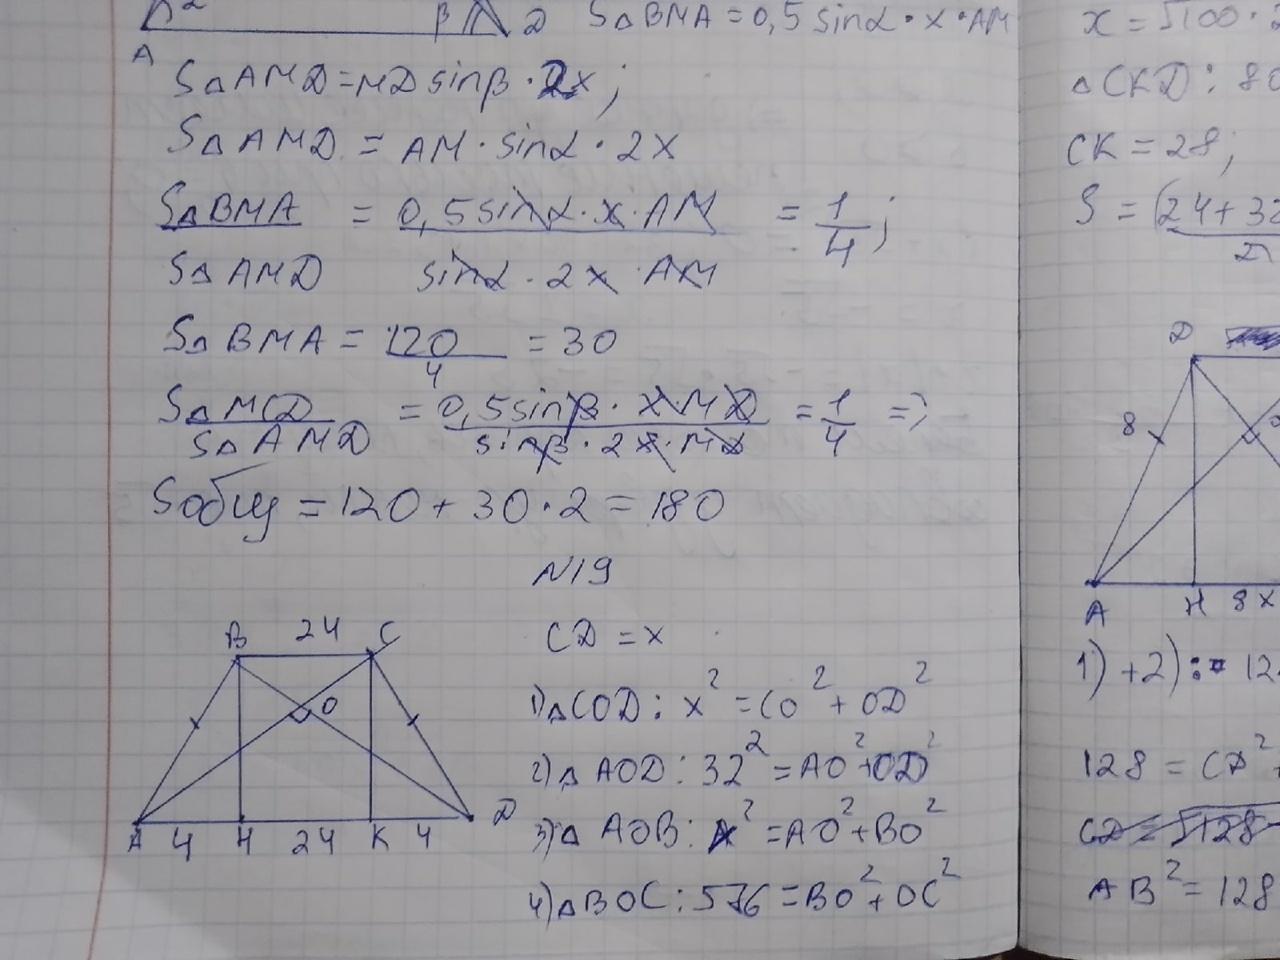 α
β
A
D
S△BMA = 0,5 sinα · x · AM
S△AMD = MD sinβ · 2x;
S△AMD = AM · sinα · 2x
S△BMA / S△AMD = 0,5 sinα · x · AM / sinα · 2x · AM = 1/4;
S△BMA = 120/4 = 30
S△MCD / S△AMD = 0,5 sinβ · x · MD / sinβ · 2x · MD = 1/4 =>
Sобщ = 120 + 30 · 2 = 180
N19
B 24 C
O
A 4 H 24 K 4 D
CD = x
1) △COD: x² = CO² + OD²
2) △AOD: 32² = AO² + OD²
3) △AOB: x² = AO² + BO²
4) △BOC: 576 = BO² + OC²
x = √100 ·
△CKD: 80
CK = 28;
S = (24 + 32 / 2
D
8
A H 8 x
1) + 2): 12
128 = CD²
CD = √128
AB² = 128